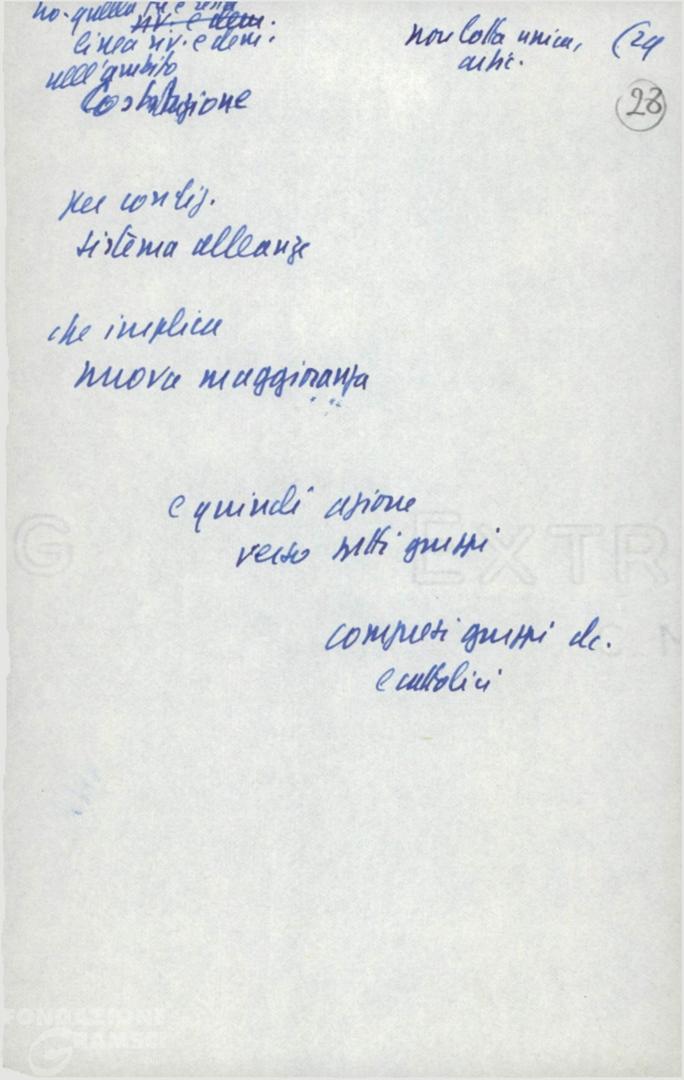 no. quella
riv. e dem.
linea riv. e dem.
nell'ambito
Costituzione
non lotta unica,
(24
28
per config.
sistema alleanze
che implica
nuova maggioranza
e quindi azione
verso tutti gruppi
compresi gruppi dc.
e cattolici
G EXTR
FONDAZIONE
GRAMSCI